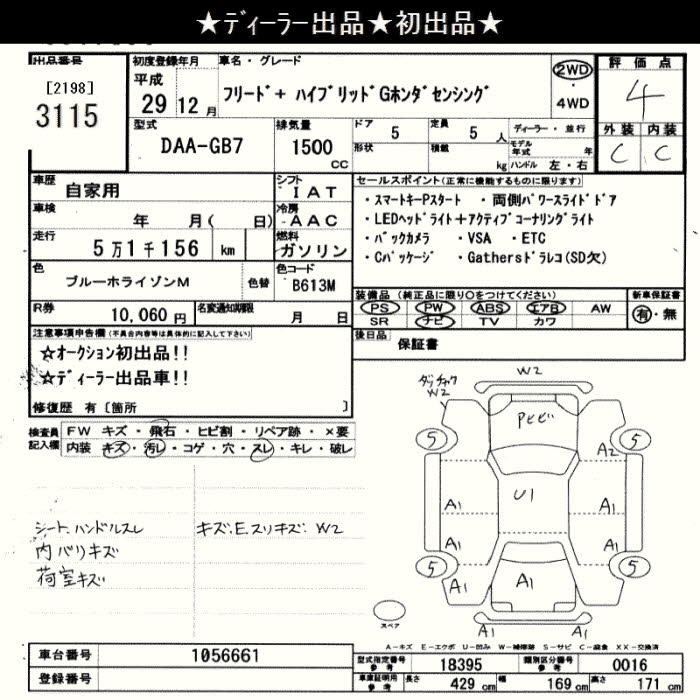 ★ディーラー出品★初出品★
出品番号
[2198]
3115
初度登録年月
平成
29 12月
車名・グレード
フリード+ ハイブリッドGホンダセンシング
2WD
・
4WD
評価点
4
外装 内装
C C
型式
DAA-GB7
排気量
1500
CC
ドア 5
定員 5 人
形状
積載 kg
ディーラー・並行
モデル年式 年
ハンドル 左・右
車歴
自家用
シフト
IAT
車検
年 月( 日)
冷房
AAC
走行
5万1千156 km
燃料
ガソリン
色
ブルーホライゾンM
色替
色コード
B613M
R券
10,060円
名変通知期限
月 日
セールスポイント(正常に機能するものに限ります)
・スマートキーPスタート ・両側パワースライドドア
・LEDヘッドライト+アクティブコーナリングライト
・バックカメラ ・VSA ・ETC
・Cパッケージ ・Gathersドラレコ(SD欠)
装備品 (純正品に限り○をつけてください)
PS PW ABS エアB AW
SR ナビ TV カワ
新車保証書
有・無
後日品
保証書
注意事項申告欄(不具合内容等は具体的に記入して下さい)
☆オークション初出品!!
☆ディーラー出品車!!
修復歴 有〔箇所 〕
検査員記入欄
FW キズ・飛石・ヒビ割・リペア跡・×要
内装 キズ・汚レ・コゲ・穴・スレ・キレ・破レ
シート.ハンドルスレ
内バリキズ
荷室キズ
キズ.E.スリキズ W2
W2
W2
トビ
5
5
A2
A1
U1
A1
A1
A1
5
5
A1
A1
A1
A1
スペア
A-キズ E-エクボ U-凹み W-補修跡 S-サビ C-腐食 XX-交換済
車台番号
1056661
登録番号
型式指定番号 参考
18395
類別区分番号 参考
0016
車庫証明用 参考
長さ 429 cm
幅 169 cm
高さ 171 cm